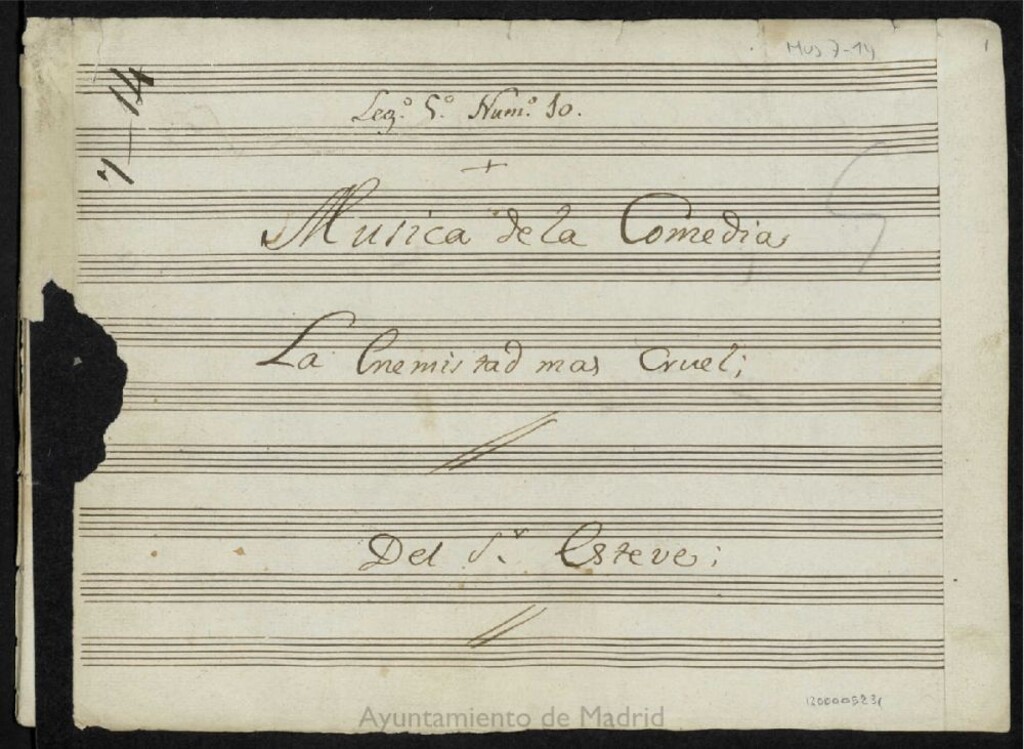 Mus 7-14
1
7-14
Leg.º 5.º Num.º 10.
Musica de la Comedia
La Enemistad mas Cruel;
Del S.r Esteve;
1200005231
Ayuntamiento de Madrid